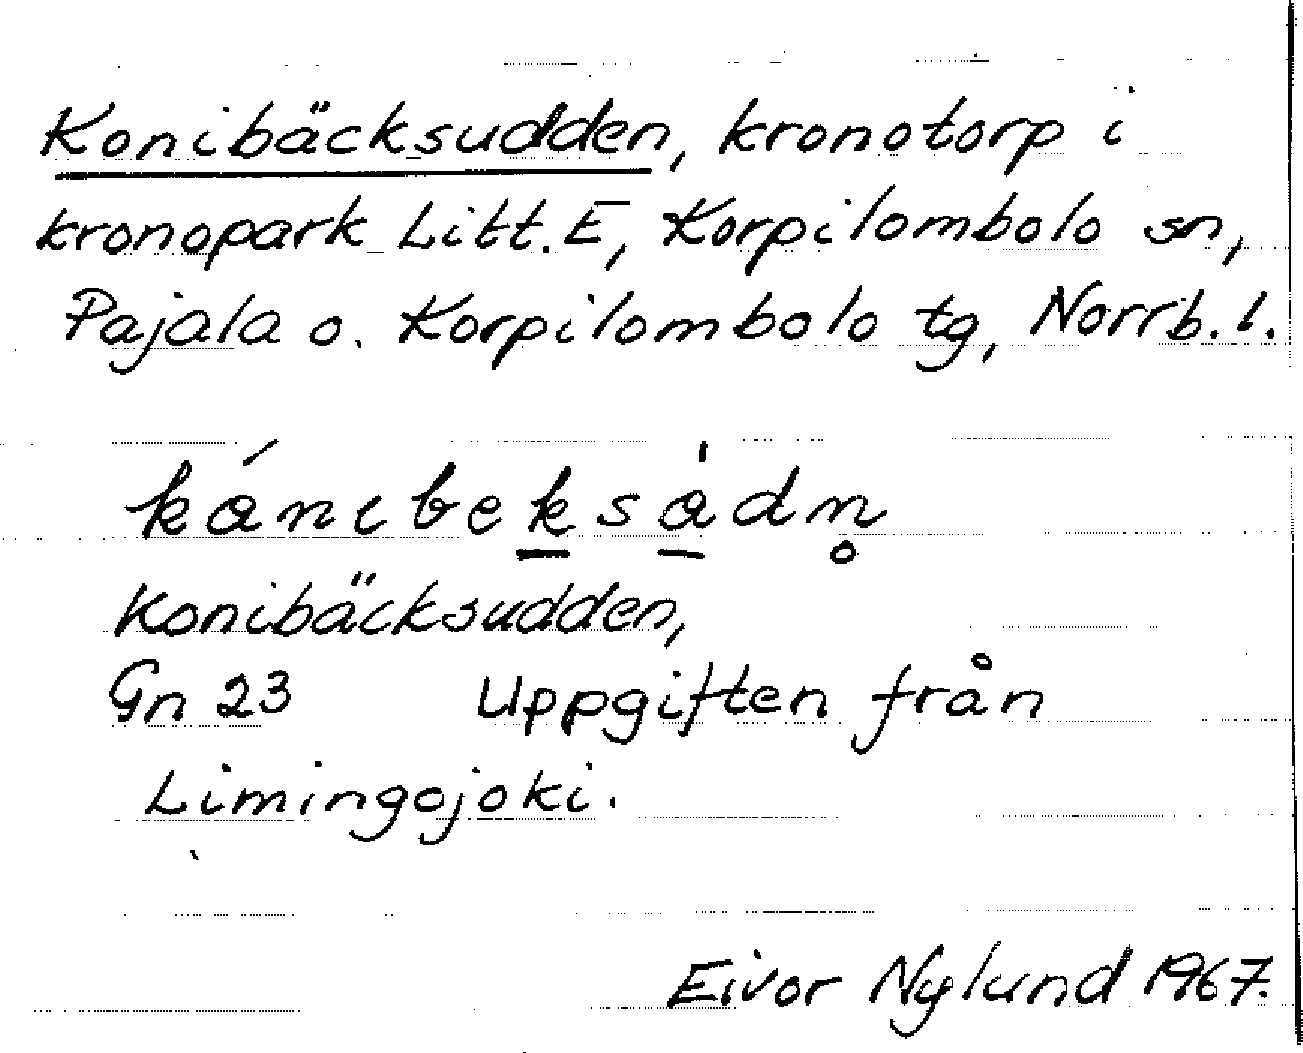 Konibäcksudden, kronotorp i
kronopark Litt. E, Korpilombolo sn,
Pajala o. Korpilombolo tg, Norrb. l.
kánibeksadn̥
Konibäcksudden,
Gn 23 Uppgiften från
Limingojoki.
Eivor Nylund 1967.